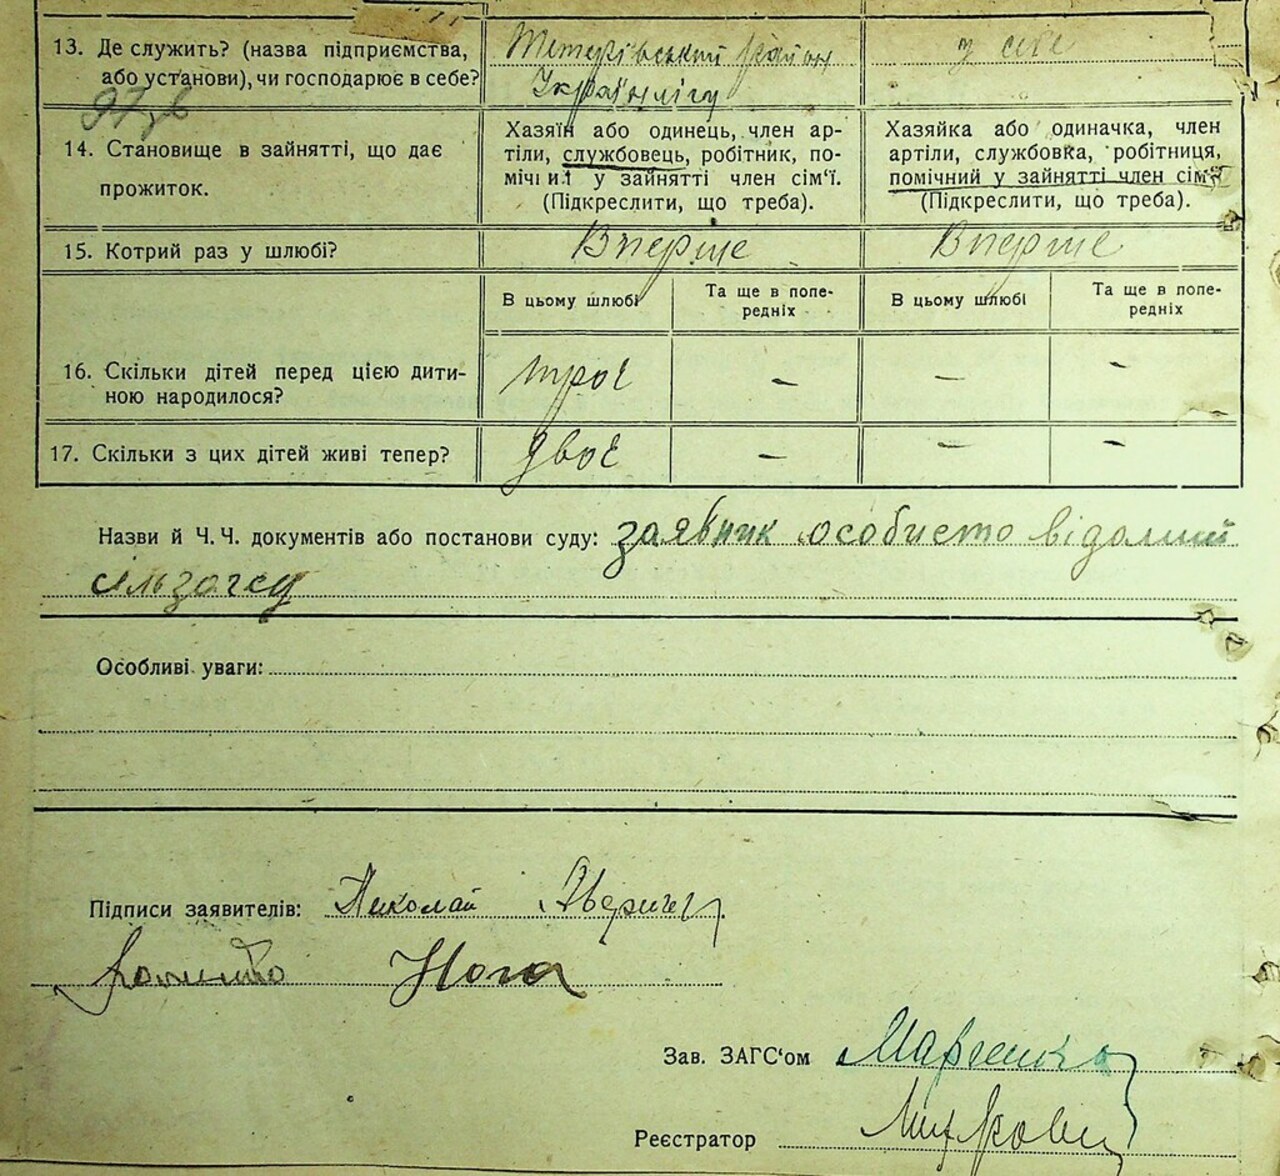 13. Де служить? (назва підприємства,
або установи), чи господарює в себе?
Тетерівський район
Українлігу
у себе
14. Становище в зайнятті, що дає
прожиток.
Хазяїн або одинець, член ар-
тіли, службовець, робітник, по-
мічний у зайнятті член сім'ї.
(Підкреслити, що треба).
Хазяйка або одиначка, член
артіли, службовка, робітниця,
помічний у зайнятті член сім'ї
(Підкреслити, що треба).
15. Котрий раз у шлюбі?
Вперше
Вперше
В цьому шлюбі
Та ще в попе-
редніх
В цьому шлюбі
Та ще в попе-
редніх
16. Скільки дітей перед цією дити-
ною народилося?
троє
–
–
–
17. Скільки з цих дітей живі тепер?
двоє
–
–
–
Назви й Ч. Ч. документів або постанови суду: заявник особисто відомий
Особливі уваги:
Підписи заявителів: Николай
Нога
Зав. ЗАГС'ом
Реєстратор